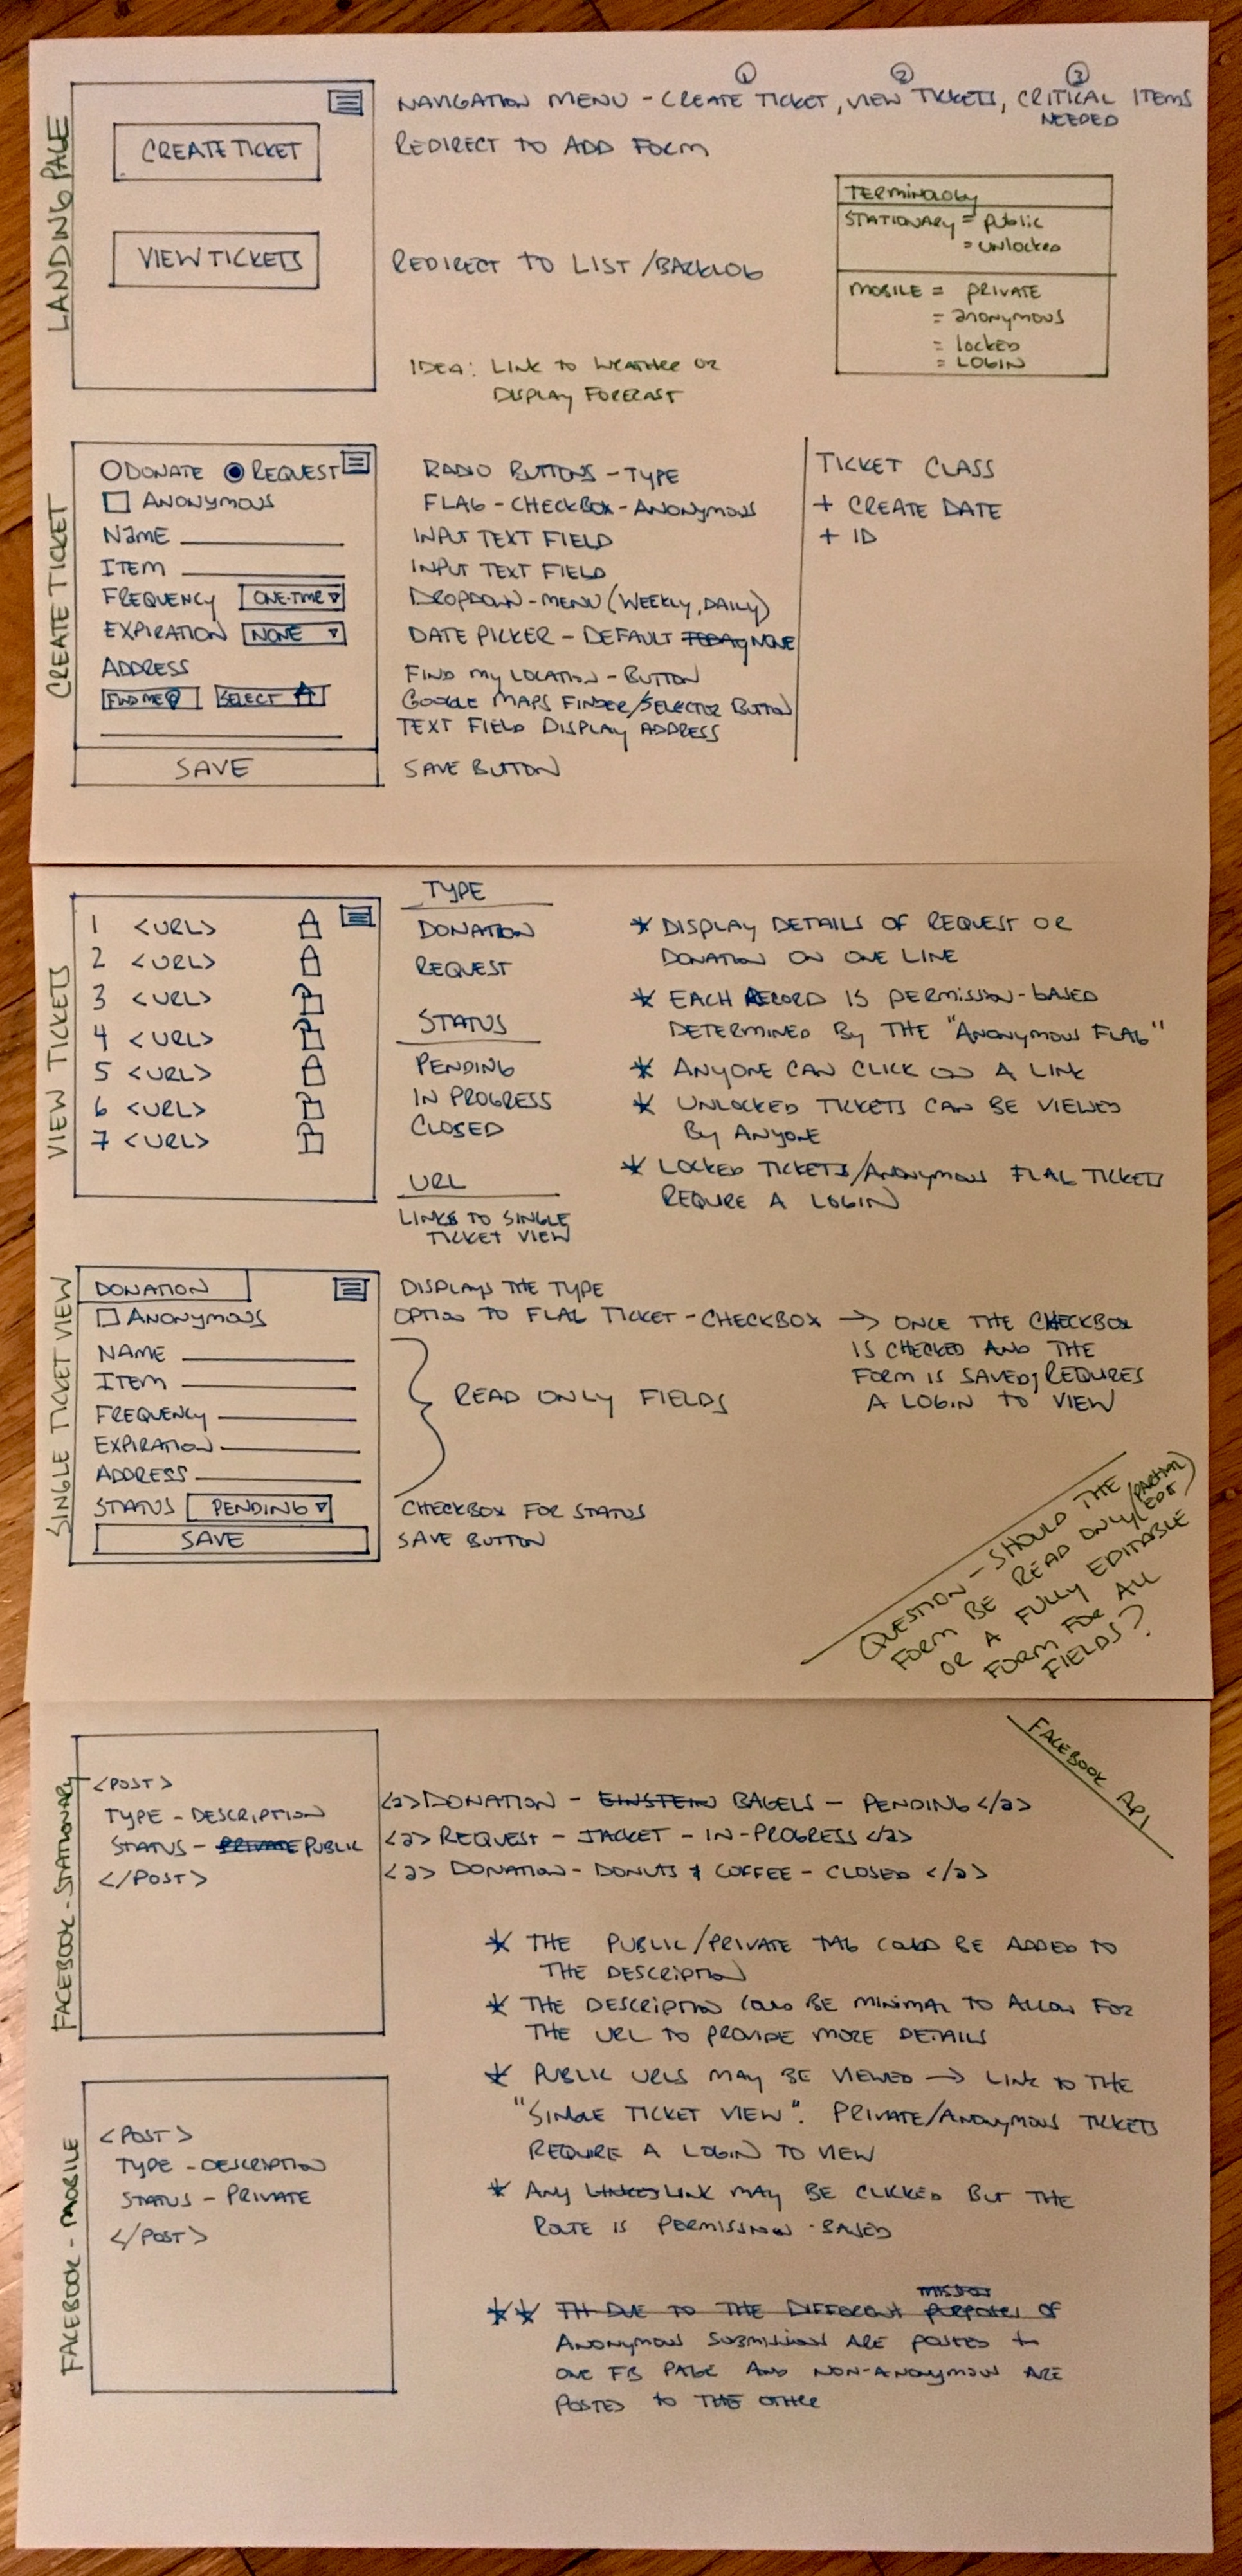 LANDING PAGE
CREATE TICKET
VIEW TICKETS
① ② ③
NAVIGATION MENU - CREATE TICKET, VIEW TICKETS, CRITICAL ITEMS
NEEDED
REDIRECT TO ADD FORM
REDIRECT TO LIST /BACKLOG
IDEA: LINK TO WEATHER OR
DISPLAY FORECAST
TERMINOLOGY
STATIONARY = PUBLIC
= UNLOCKED
MOBILE = PRIVATE
= ANONYMOUS
= LOCKED
= LOGIN
CREATE TICKET
DONATE REQUEST
ANONYMOUS
NAME
ITEM
FREQUENCY ONE-TIME
EXPIRATION NONE
ADDRESS
FIND ME SELECT
SAVE
RADIO BUTTONS - TYPE
FLAG - CHECKBOX - ANONYMOUS
INPUT TEXT FIELD
INPUT TEXT FIELD
DROPDOWN - MENU (WEEKLY, DAILY)
DATE PICKER - DEFAULT TODAY NONE
FIND MY LOCATION - BUTTON
GOOGLE MAPS FINDER/SELECTOR BUTTON
TEXT FIELD DISPLAY ADDRESS
SAVE BUTTON
TICKET CLASS
+ CREATE DATE
+ ID
VIEW TICKETS
1 <URL>
2 <URL>
3 <URL>
4 <URL>
5 <URL>
6 <URL>
7 <URL>
TYPE
DONATION
REQUEST
STATUS
PENDING
IN PROGRESS
CLOSED
URL
LINKS TO SINGLE
TICKET VIEW
* DISPLAY DETAILS OF REQUEST OR
DONATION ON ONE LINE
* EACH RECORD IS PERMISSION-BASED
DETERMINED BY THE "ANONYMOUS FLAG"
* ANYONE CAN CLICK ON A LINK
* UNLOCKED TICKETS CAN BE VIEWED
BY ANYONE
* LOCKED TICKETS/ANONYMOUS FLAG TICKETS
REQUIRE A LOGIN
SINGLE TICKET VIEW
DONATION
ANONYMOUS
NAME
ITEM
FREQUENCY
EXPIRATION
ADDRESS
STATUS PENDING
SAVE
DISPLAYS THE TYPE
OPTION TO FLAG TICKET - CHECKBOX → ONCE THE CHECKBOX
IS CHECKED AND THE
FORM IS SAVED, REQUIRES
A LOGIN TO VIEW
READ ONLY FIELDS
CHECKBOX FOR STATUS
SAVE BUTTON
QUESTION - SHOULD THE
FORM BE READ ONLY/(PARTIAL EDIT)
OR A FULLY EDITABLE
FORM FOR ALL
FIELDS?
FACEBOOK - STATIONARY
<POST>
TYPE - DESCRIPTION
STATUS - PRIVATE PUBLIC
</POST>
FACEBOOK API
<a> DONATION - EINSTEIN BAGELS - PENDING </a>
<a> REQUEST - JACKET - IN-PROGRESS </a>
<a> DONATION - DONUTS & COFFEE - CLOSED </a>
* THE PUBLIC/PRIVATE TAG COULD BE ADDED TO
THE DESCRIPTION
* THE DESCRIPTION COULD BE MINIMAL TO ALLOW FOR
THE URL TO PROVIDE MORE DETAILS
* PUBLIC URLS MAY BE VIEWED → LINK TO THE
"SINGLE TICKET VIEW". PRIVATE/ANONYMOUS TICKETS
REQUIRE A LOGIN TO VIEW
* ANY LINKS LINK MAY BE CLICKED BUT THE
ROUTE IS PERMISSION-BASED
FACEBOOK - MOBILE
<POST>
TYPE - DESCRIPTION
STATUS - PRIVATE
</POST>
MISSION
** TH DUE TO THE DIFFERENT PURPOSES OF
ANONYMOUS SUBMISSIONS ARE POSTED TO
ONE FB PAGE AND NON-ANONYMOUS ARE
POSTED TO THE OTHER